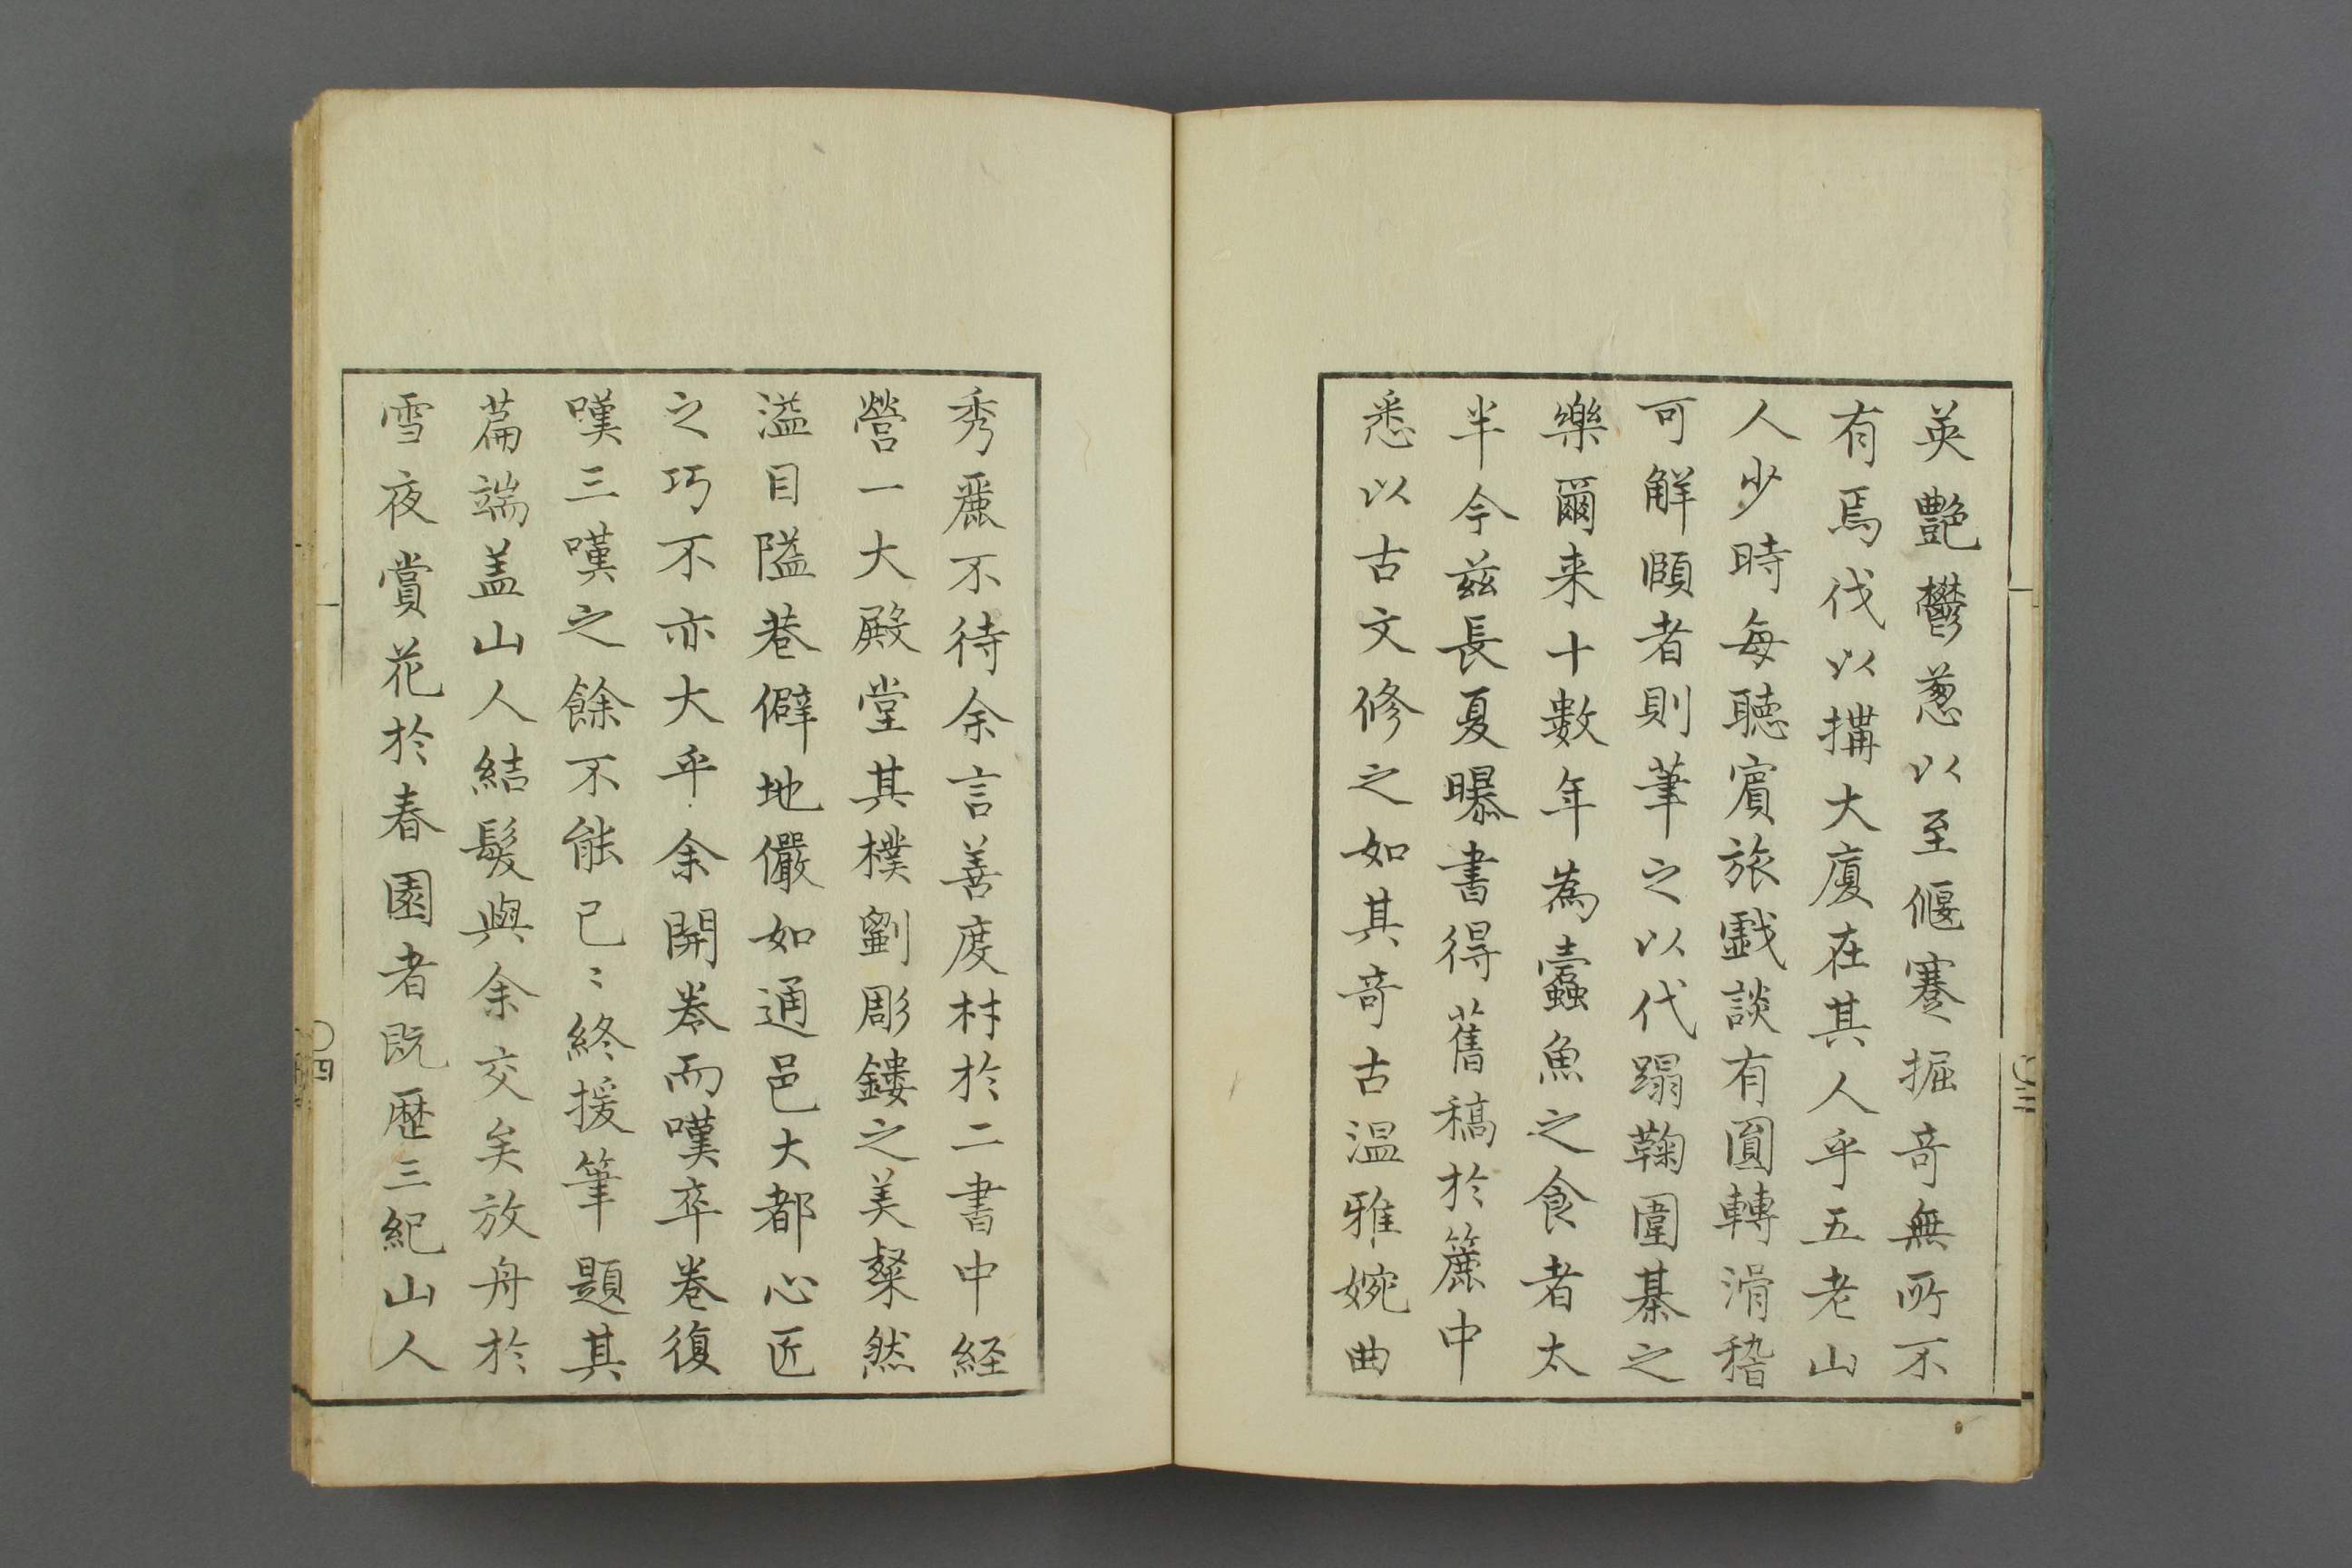 英艷鬱蔥以至偃蹇掘竒無所不
有焉伐以搆大廈在其人乎五老山
人少時每聽賔旅戱談有圓轉滑稽
可解頤者則筆之以代蹋鞠圍棊之
樂爾来十數年為蠧魚之食者太
半今兹長夏曝書得舊稿於簏中
悉以古文修之如其竒古温雅婉曲
〇三
秀麗不待余言善度材於二書中経
營一大殿堂其樸劉彫鏤之美粲然
溢目隘巷僻地儼如通邑大都心匠
之巧不亦大乎余開巻而嘆卒巻復
嘆三嘆之餘不能已〻終援筆題其
篇端盖山人結髮與余交矣放舟於
雪夜賞花於春園者既歴三紀山人
〇四